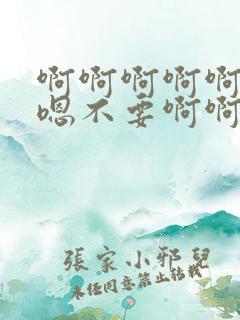 啊啊啊啊啊
嗯不要啊啊
張家小邪兒
未任同意禁止转载